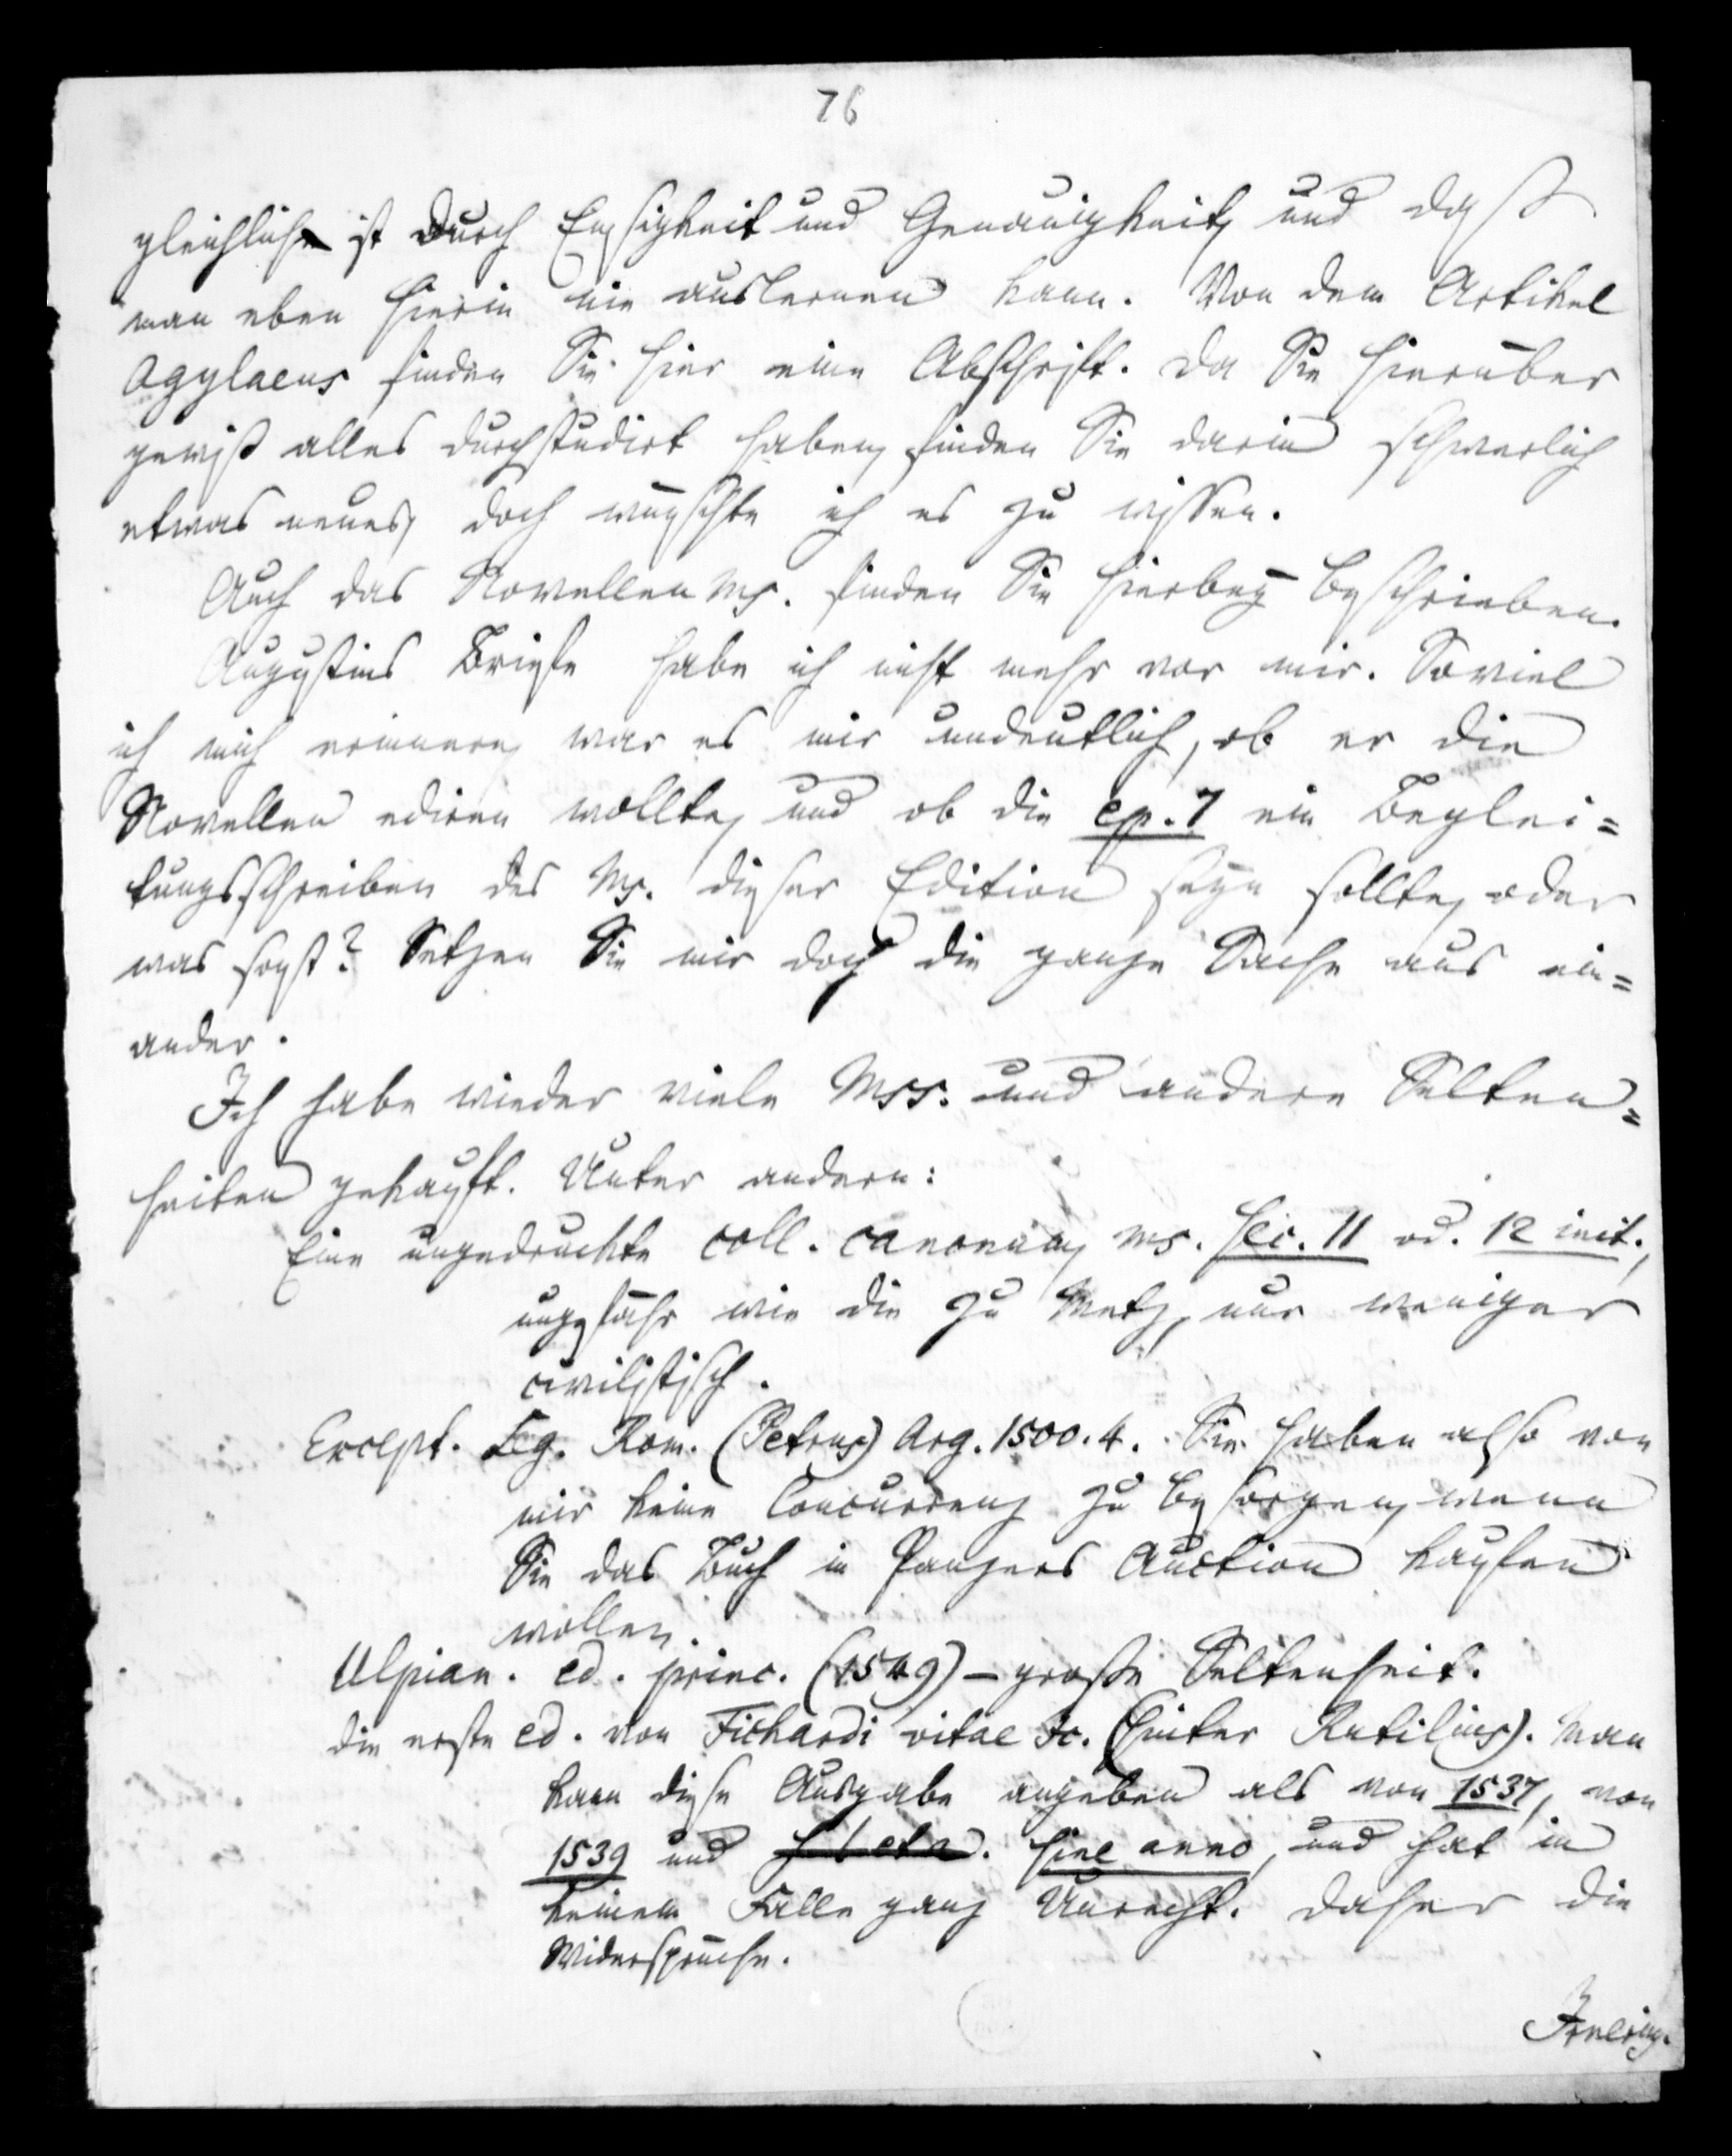 76
gleichlich ist durch Emsigkeit und Genauigkeit, und daß
man eben hierin nie auslernen kann. Von dem Artikel
Agylaeus finden Sie hier eine Abschrift. Da Sie hierüber
gewiß alles durchstudirt haben, finden Sie darin schwerlich
etwas neues, doch wünschte ich es zu wissen.
Auch das Novellen Ms. finden Sie hierbey beschrieben.
Augustins Briefe habe ich nicht mehr vor mir. Soviel
ich mich erinnere, war es mir undeutlich, ob er die
Novellen ediren wollte, und ob die ep. 7 ein Beglei=
tungsschreiben des Ms. dieser Edition seyn sollte, oder
was sonst? Setzen Sie mir doch die ganze Sache aus ein=
ander.
Ich habe wieder viele Mss. und andere Selten=
heiten gekauft. Unter andern:
Eine ungedruckte coll. canonum, ms. sec. 11 od. 12 init.,
ungefähr wie die zu Metz, nur weniger
civilistisch.
Except. Leg. Rom. (Petrus) Arg. 1500. 4. Sie haben also von
mir keine Concurrenz zu besorgen, wenn
Sie das Buch in Panzers Auction kaufen
wollen.
Ulpian. ed. princ. (1549) – große Seltenheit.
die erste ed. von Fichardi vitae Ic. (hinter Rutilius). Man
kann diese Ausgabe angeben als von 1537, von
1539 und sine anno, und hat in
keinem Falle ganz Unrecht. Daher die
Widersprüche.